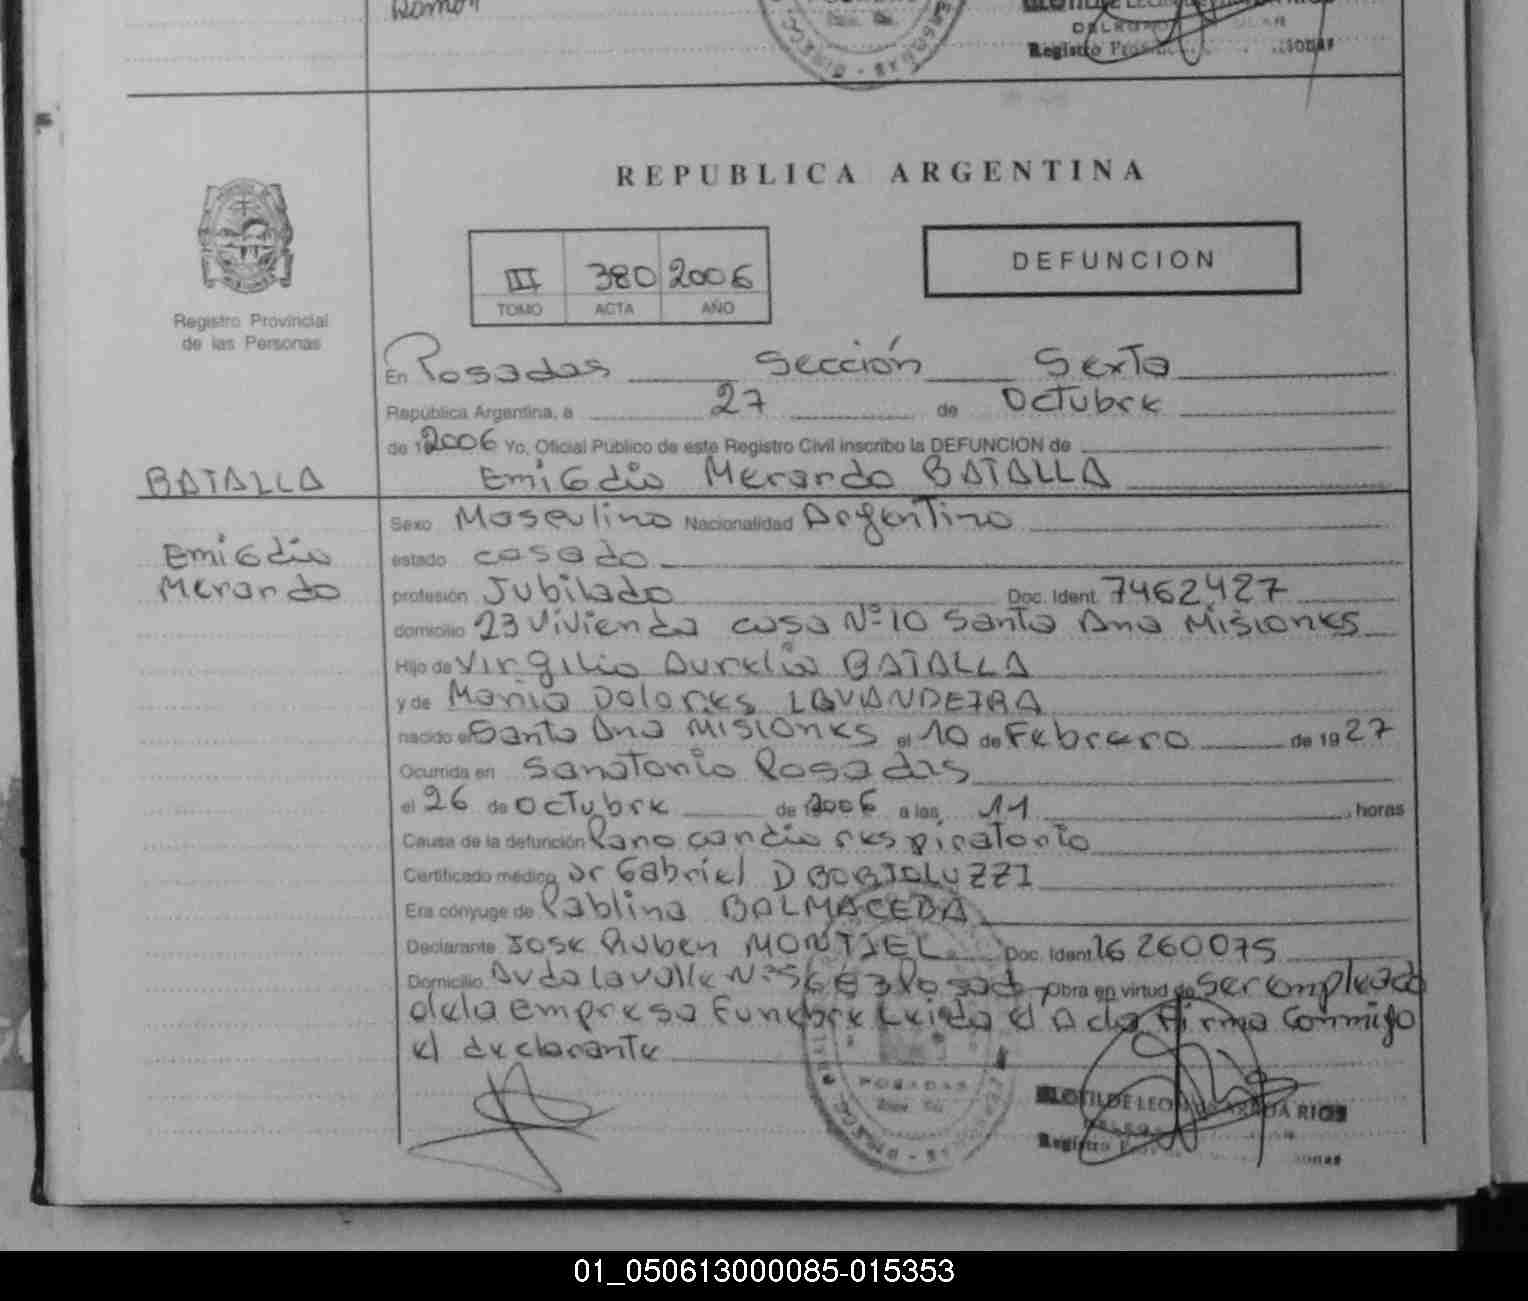 Ramón
Registro
REPUBLICA ARGENTINA
DEFUNCION
III 380 2006
TOMO ACTA AÑO
Registro Provincial
de las Personas
En Posadas Sección Sexta
República Argentina, a 27 de Octubre
de 2006 Yo, Oficial Público de este Registro Civil inscribo la DEFUNCION de
BATALLA Emigdio Merardo BATALLA
Sexo Masculino Nacionalidad Argentino
Emigdio
Merardo
estado casado
profesión Jubilado Doc. Ident. 7462427
domicilio 23 Vivienda casa Nº 10 Santa Ana Misiones
Hijo de Virgilio Aurelio BATALLA
y de Maria Dolores LAVANDEIRA
nacido en Santa Ana Misiones el 10 de Febrero de 1927
Ocurrida en Sanatorio Posadas
el 26 de octubre de 2006 a las 11 horas
Causa de la defunción Paro cardio respiratorio
Certificado médico Dr Gabriel D BORTOLUZZI
Era cónyuge de Pablina BALMACEDA
Declarante Jose Ruben MONTIEL Doc. Ident 16 260075
Domicilio Avda lavalle Nº 5663 Posad Obra en virtud de ser empleado
dela empresa Funebre Leida el Acta Firma Conmigo
el declarante
POSADAS
CLOTILDE LEON RIOS
Registro
01_050613000085-015353